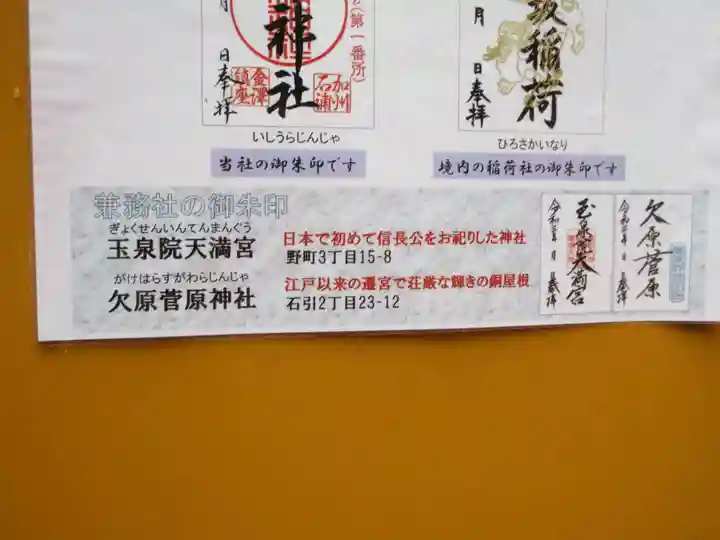 (第一番所)
神社
月
日奉拝
金澤
鎮座
加州
石浦
いしうらじんじゃ
当社の御朱印です
坂稲荷
月
日奉拝
ひろさかいなり
境内の稲荷社の御朱印です
兼務社の御朱印
ぎょくせんいんてんまんぐう
玉泉院天満宮
日本で初めて信長公をお祀りした神社
野町3丁目15-8
がけはらすがわらじんじゃ
欠原菅原神社
江戸以来の遷宮で荘厳な輝きの銅屋根
石引2丁目23-12
玉泉院天満宮
令和 年 月 日 奉拝
欠原菅原
令和 年 月 日 奉拝